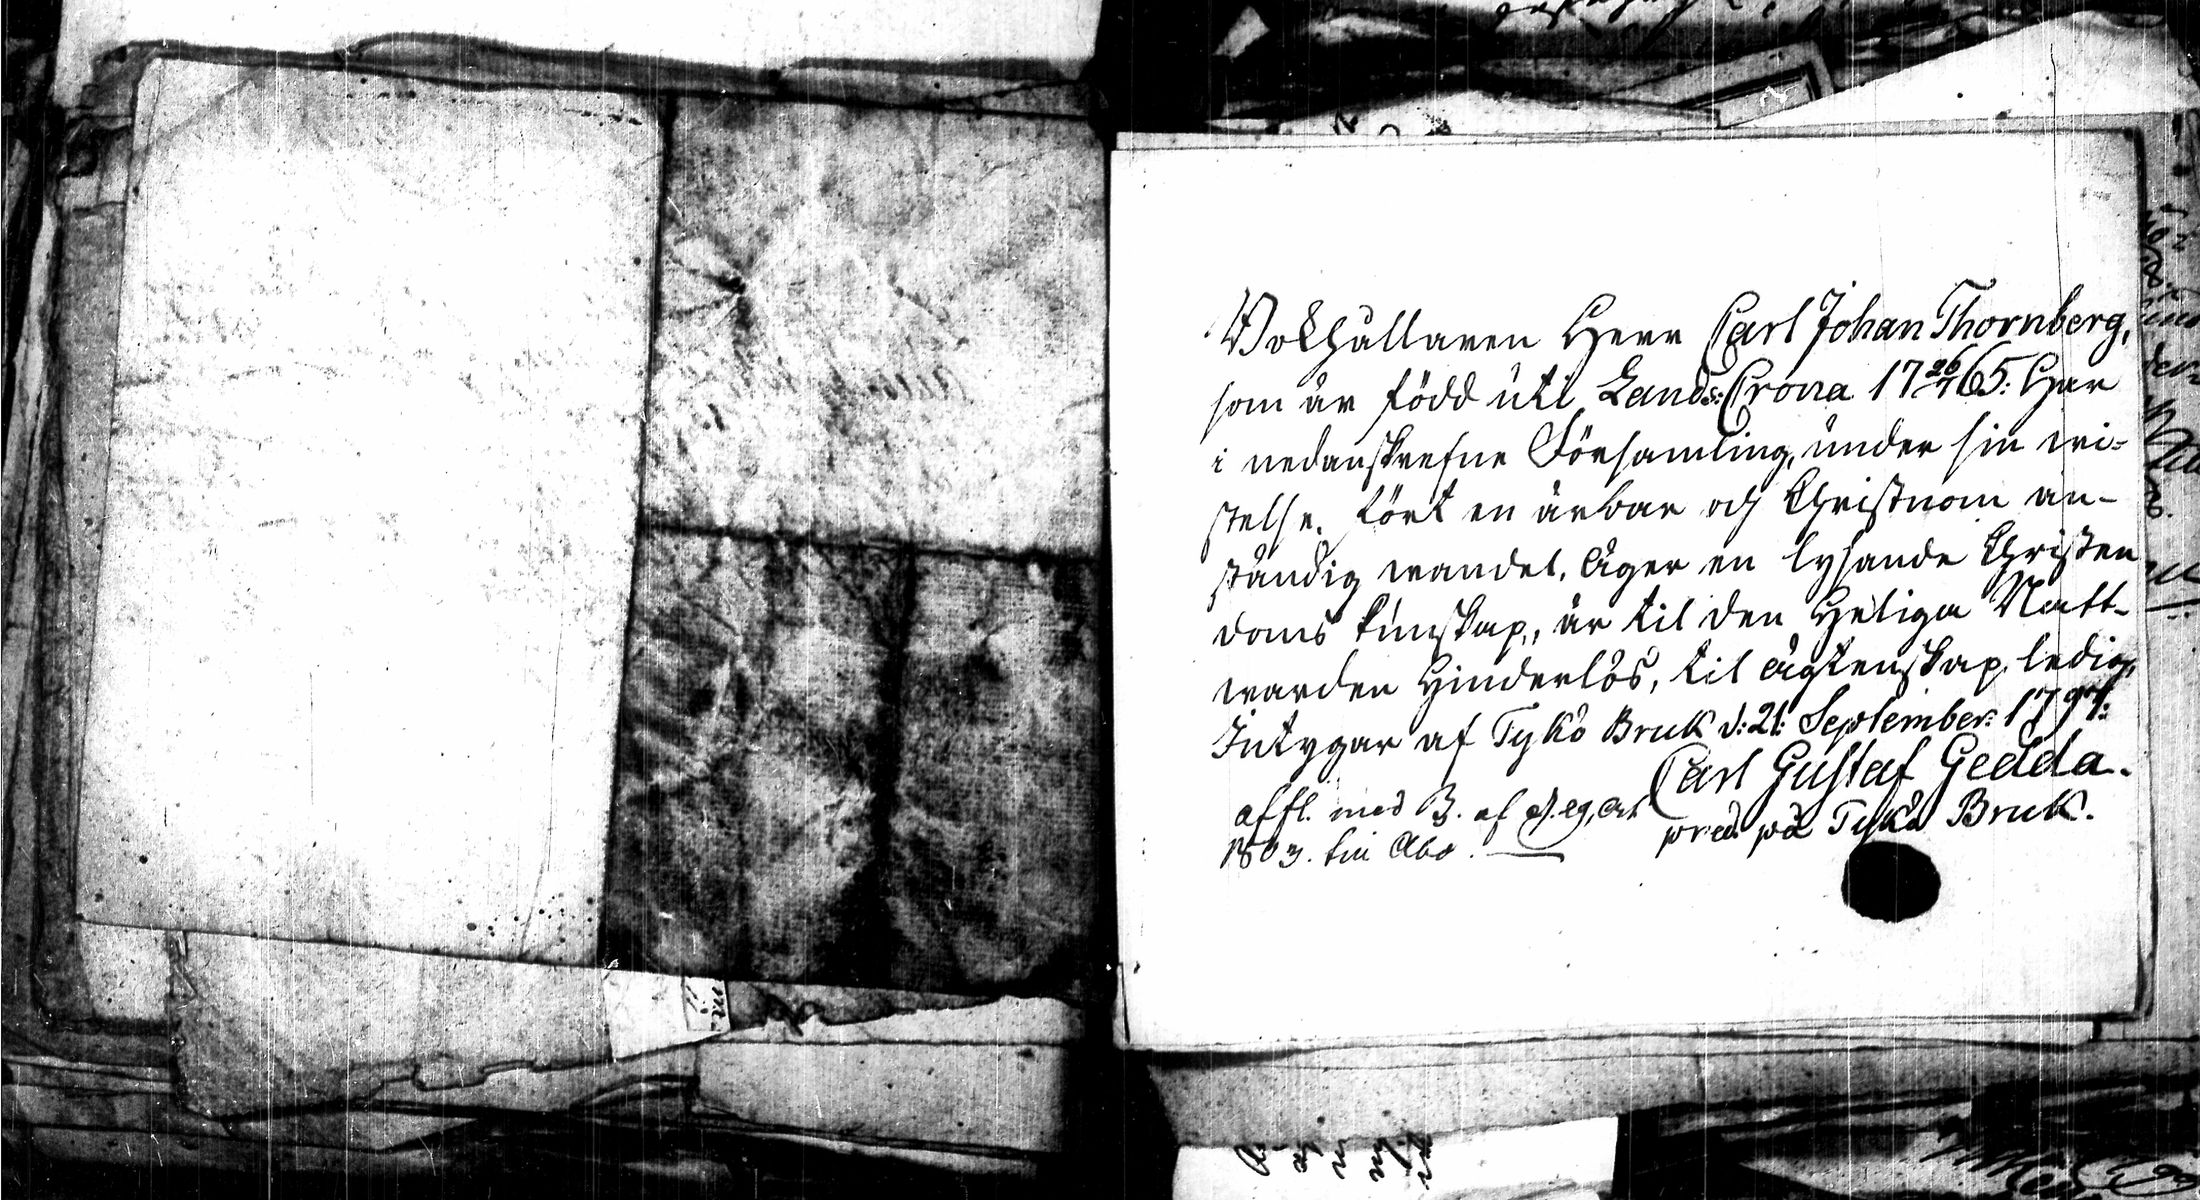 Bokhållaren Herr Carl Johan Thornberg,
som är född uti Lands:Crona 17 26/7 65: Har
i nedanskrefne Församling, under sin wi-
stelse, fört en ärbar och Christnom an-
ständig wandel, äger en lysande Christen
doms kunskap, är til den Heliga Natt-
warden Hinderlös, til ägtenskap ledig,
Intygar af Tykö Bruk d: 21: September: 1797:
Carl Gustaf Gedda.
pred. på Tykö Bruk.
affl. med B. af
1803. Åbo.